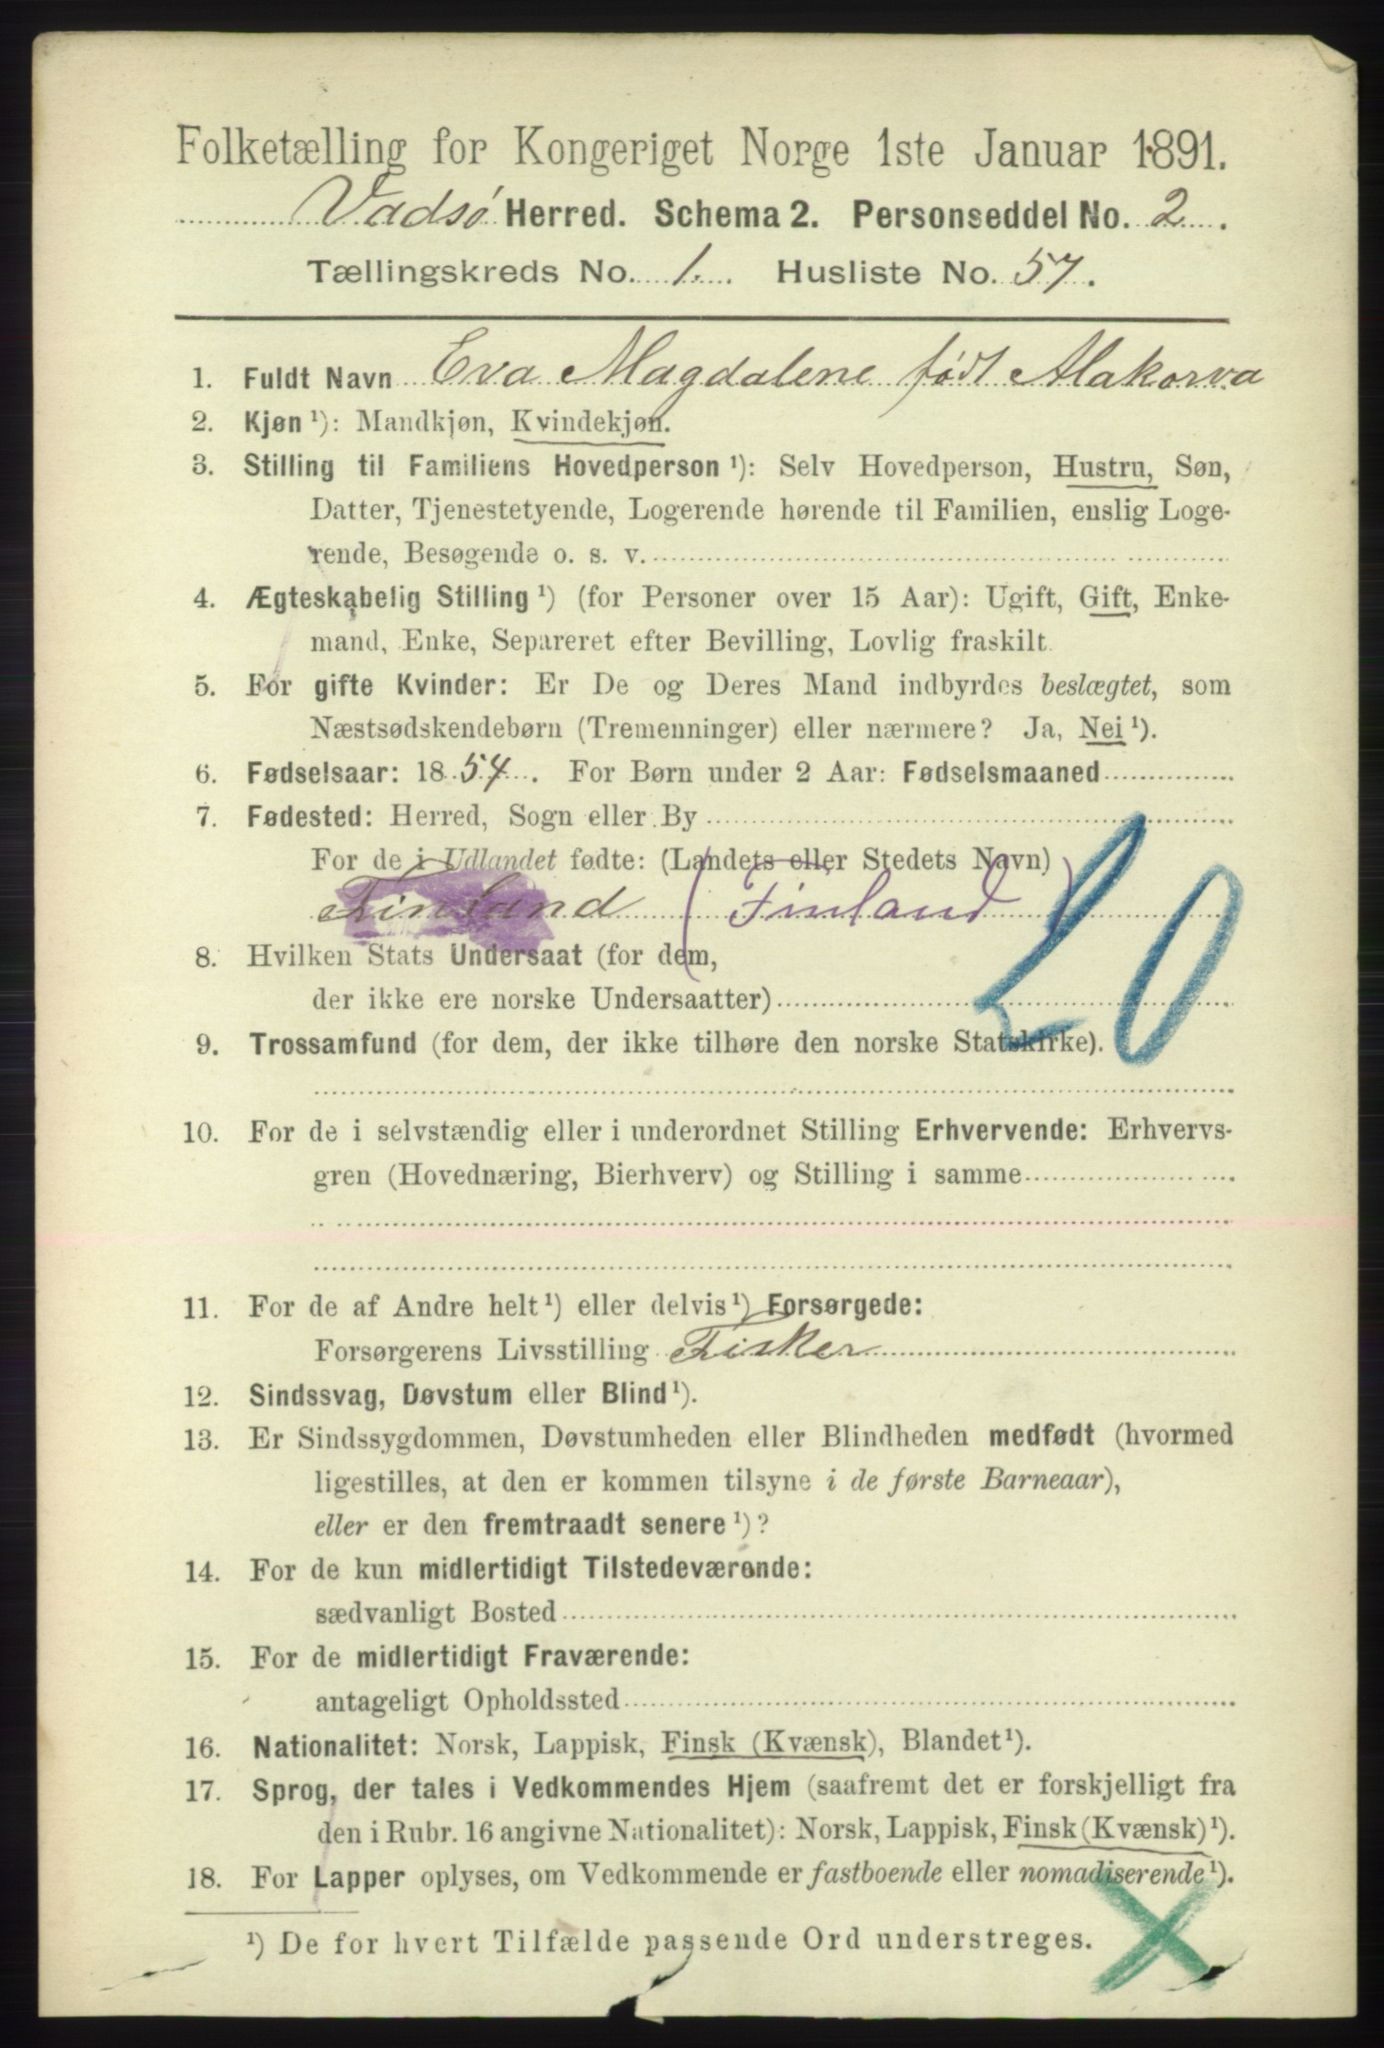 Folketælling for Kongeriget Norge 1ste Januar 1891.
Vadsø Herred. Schema 2. Personseddel No. 2.
Tællingskreds No. 1. Husliste No. 57.
1. Fuldt Navn Eva Magdalene født Alakorva
2. Kjøn ¹): Mandkjøn, Kvindekjøn.
3. Stilling til Familiens Hovedperson ¹): Selv Hovedperson, Hustru, Søn,
Datter, Tjenestetyende, Logerende hørende til Familien, enslig Loge-
rende, Besøgende o. s. v.
4. Ægteskabelig Stilling ¹) (for Personer over 15 Aar): Ugift, Gift, Enke-
mand, Enke, Separeret efter Bevilling, Lovlig fraskilt.
5. For gifte Kvinder: Er De og Deres Mand indbyrdes beslægtet, som
Næstsødskendebørn (Tremenninger) eller nærmere? Ja, Nei ¹).
6. Fødselsaar: 1854. For Børn under 2 Aar: Fødselsmaaned
7. Fødested: Herred, Sogn eller By
For de i Udlandet fødte: (Landets eller Stedets Navn)
Finland (Finland) 20
8. Hvilken Stats Undersaat (for dem,
der ikke ere norske Undersaatter)
9. Trossamfund (for dem, der ikke tilhøre den norske Statskirke).
10. For de i selvstændig eller i underordnet Stilling Erhvervende: Erhvervs-
gren (Hovednæring, Bierhverv) og Stilling i samme
11. For de af Andre helt ¹) eller delvis ¹) Forsørgede:
Forsørgerens Livsstilling Fisker
12. Sindssvag, Døvstum eller Blind ¹).
13. Er Sindssygdommen, Døvstumheden eller Blindheden medfødt (hvormed
ligestilles, at den er kommen tilsyne i de første Barneaar),
eller er den fremtraadt senere ¹)?
14. For de kun midlertidigt Tilstedeværende:
sædvanligt Bosted
15. For de midlertidigt Fraværende:
antageligt Opholdssted
16. Nationalitet: Norsk, Lappisk, Finsk (Kvænsk), Blandet ¹).
17. Sprog, der tales i Vedkommendes Hjem (saafremt det er forskjelligt fra
den i Rubr. 16 angivne Nationalitet): Norsk, Lappisk, Finsk (Kvænsk) ¹).
18. For Lapper oplyses, om Vedkommende er fastboende eller nomadiserende ¹).
¹) De for hvert Tilfælde passende Ord understreges.